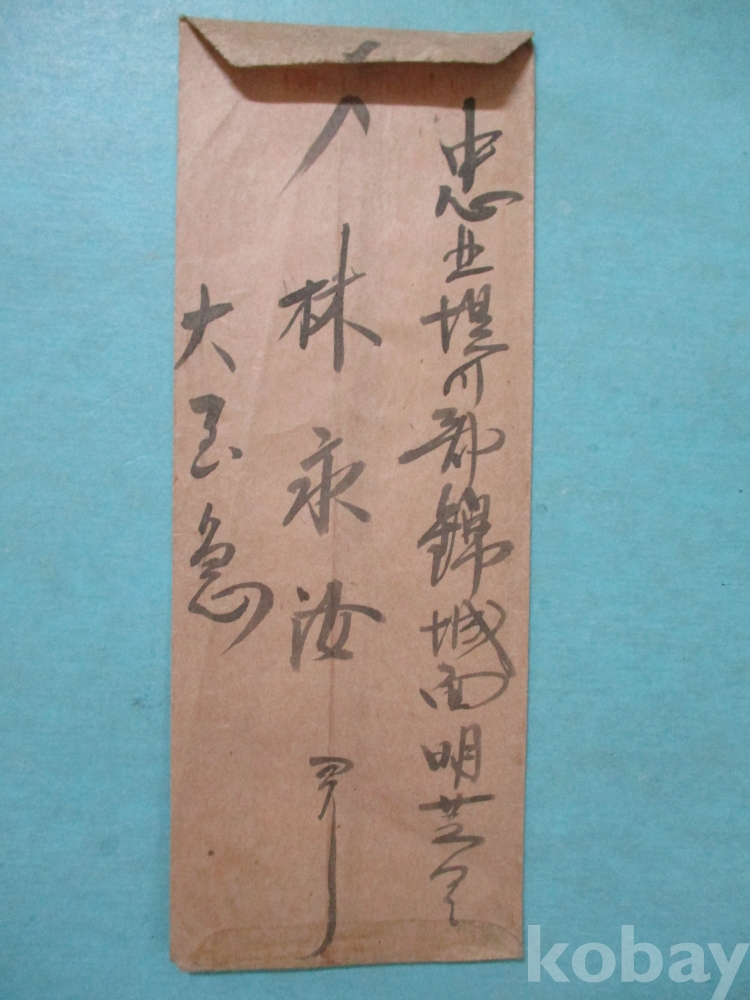 忠北堤川郡錦城面明芝里
林永汝
大至急
kobay